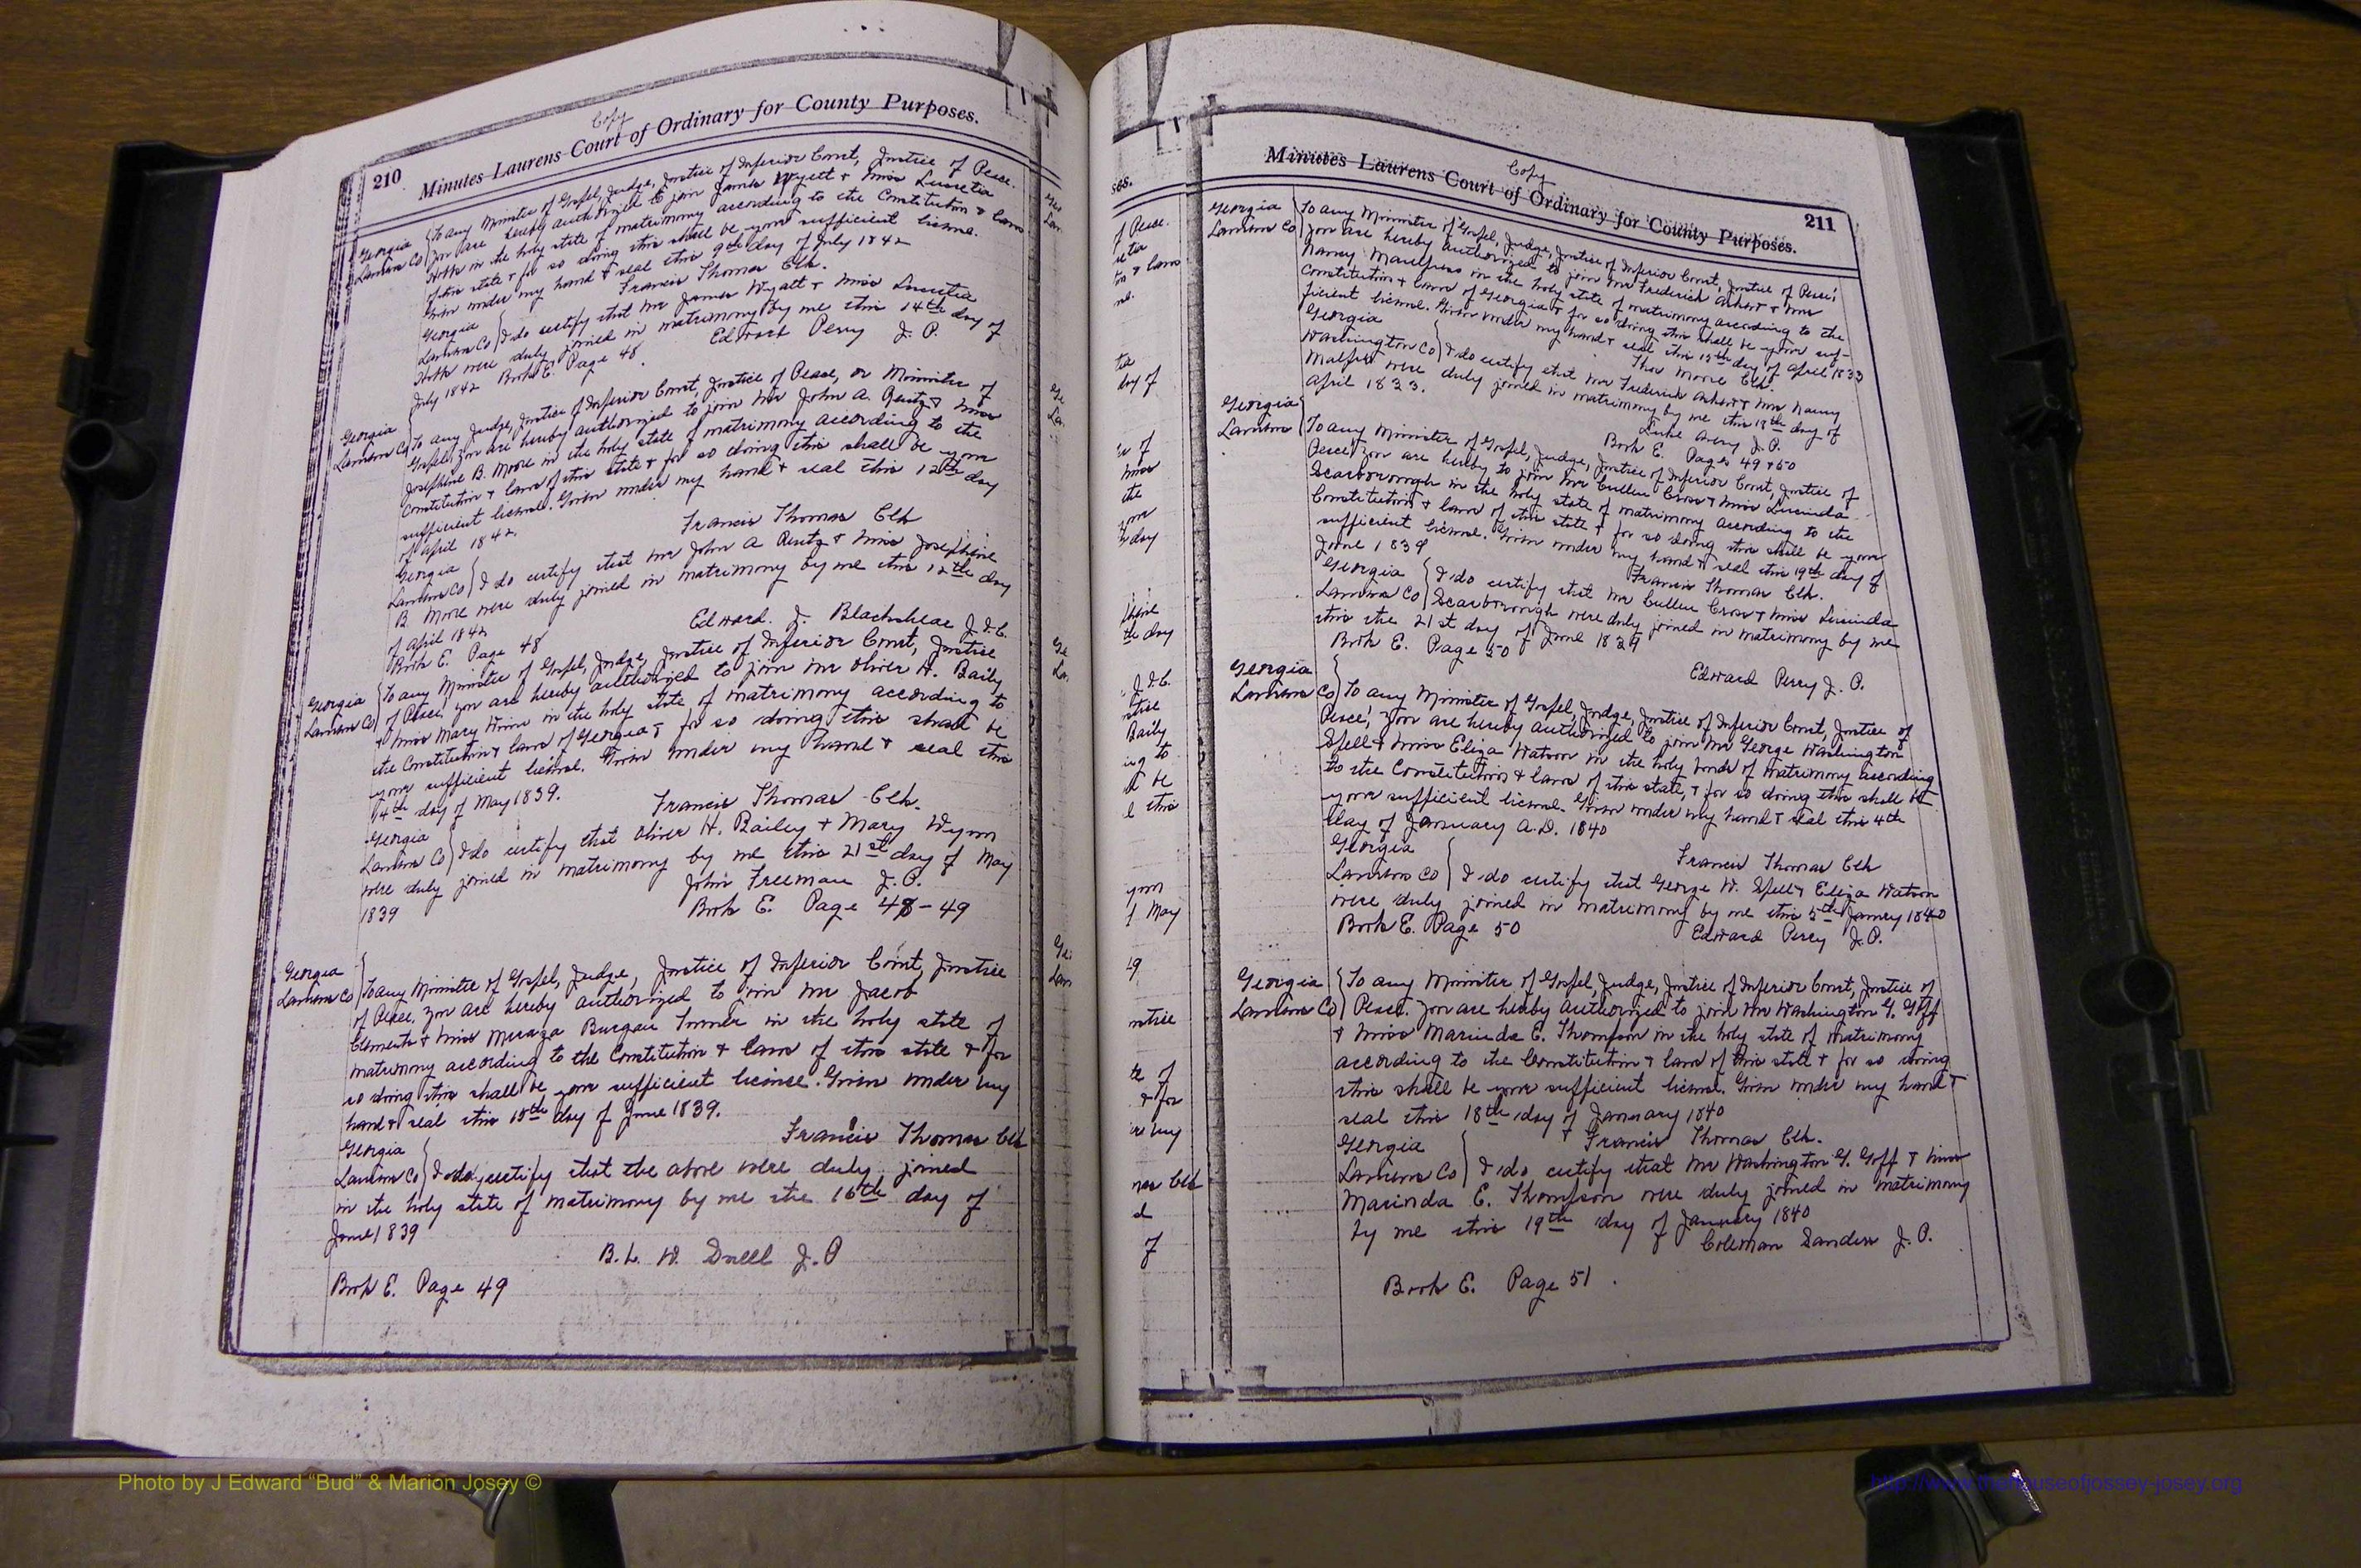 Copy
210 Minutes Laurens Court of Ordinary for County Purposes.
Georgia
Laurens Co
To any Minister of Gospel, Judge, Justice of Inferior Court, Justice of Peace.
You are hereby authorized to join James Wyatt & Miss Lucretia
in the holy state of matrimony according to the Constitution & laws
of this state & for so doing this shall be your sufficient license.
Given under my hand & seal this 9th day of July 1842
Francis Thomas Clk.
Georgia
Laurens Co I do certify that Mr James Wyatt & Miss Lucretia
were duly joined in matrimony by me this 14th day of
July 1842 Book E. Page 48. Edward Perry J. P.
Georgia
Laurens Co To any Judge, Justice of Inferior Court, Justice of Peace, or Minister of
Gospel, you are hereby authorized to join Mr John A. & Miss
Josephine B. Moore in the holy state of matrimony according to the
Constitution & laws of this state & for so doing this shall be your
sufficient license. Given under my hand & seal this 12th day
of April 1842.
Francis Thomas Clk
Georgia
Laurens Co I do certify that Mr John A & Miss Josephine
B. Moore were duly joined in matrimony by me this 12th day
of April 1842
Edward. J. Blackshear J.I.C.
Book E. Page 48
Georgia
Laurens Co
To any Minister of Gospel, Judge, Justice of Inferior Court, Justice
of Peace, you are hereby authorized to join Mr Oliver H. Baily
& Miss Mary in the holy state of matrimony according to
the Constitution & laws of Georgia & for so doing this shall be
your sufficient license. Given under my hand & seal this
14th day of May 1839.
Francis Thomas Clk.
Georgia
Laurens Co I do certify that Oliver H. Bailey & Mary Wynn
were duly joined in matrimony by me this 21st day of May
1839 John Freeman J. P.
Book E. Page 48-49
Georgia
Laurens Co To any Minister of Gospel, Judge, Justice of Inferior Court, Justice
of Peace, you are hereby authorized to join Mr Jacob
Clements & Miss in the holy state of
matrimony according to the Constitution & laws of this state & for
so doing this shall be your sufficient license. Given under my
hand & seal this 15th day of June 1839.
Francis Thomas Clk
Georgia
Laurens Co I do certify that the above were duly joined
in the holy state of matrimony by me the 16th day of
June 1839
B. L. W. J. P
Book E. Page 49
Copy
Minutes Laurens Court of Ordinary for County Purposes. 211
Georgia
Laurens Co
To any Minister of Gospel, Judge, Justice of Inferior Court, Justice of Peace;
you are hereby authorized to join Mr Frederick &
Nancy in the holy state of matrimony according to the
Constitution & laws of Georgia & for so doing this shall be your suf-
ficient license. Given under my hand & seal this 15th day of April 1833
Thos Moore Clk.
Georgia
Washington Co I do certify that Mr Frederick & Nancy
were duly joined in matrimony by me this 18th day of
April 1833. Luke Avery J. P.
Book E. Pages 49 & 50
Georgia
Laurens
To any Minister of Gospel, Judge, Justice of Inferior Court, Justice of
Peace, you are hereby to join Mr Cullen Cross & Miss Lucinda
Scarborough in the holy state of matrimony according to the
Constitution & laws of this state & for so doing this shall be your
sufficient license. Given under my hand & seal this 19th day of
June 1839 Francis Thomas Clk.
Georgia
Laurens Co I do certify that Mr Cullen Cross & Miss Lucinda
Scarborough were duly joined in matrimony by me
this the 21st day of June 1839
Book E. Page 50 Edward Perry J. P.
Georgia
Laurens Co To any Minister of Gospel, Judge, Justice of Inferior Court, Justice of
Peace, you are hereby authorized to join Mr George Washington
Spell & Miss Eliza Watson in the holy bonds of matrimony according
to the Constitution & laws of this state, & for so doing this shall be
your sufficient license. Given under my hand & seal this 4th
day of January A.D. 1840
Francis Thomas Clk
Georgia
Laurens Co I do certify that George W. Spell & Eliza Watson
were duly joined in matrimony by me this 5th Janury 1840
Book E. Page 50 Edward Perry J.P.
Georgia
Laurens Co
To any Minister of Gospel, Judge, Justice of Inferior Court, Justice of
Peace. you are hereby authorized to join Mr Washington G. Goff
& Miss Marinda E. Thompson in the holy state of matrimony
according to the Constitution & laws of this state & for so doing
this shall be your sufficient license. Given under my hand &
seal this 18th day of January 1840
Francis Thomas Clk.
Georgia
Laurens Co I do certify that Mr Washington G. Goff & Miss
Marinda E. Thompson were duly joined in matrimony
by me this 19th day of January 1840
Coleman Sanders J. P.
Book E. Page 51
Photo by J Edward “Bud” & Marion Josey ©
http://www.thehouseofjossey-josey.org